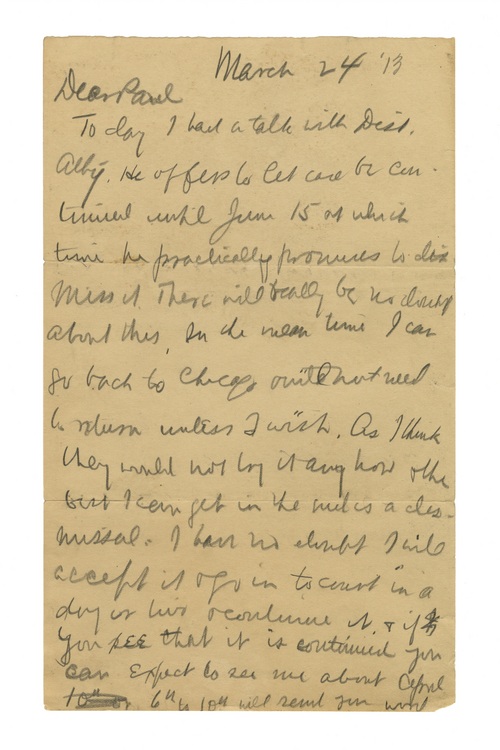 March 24 '13
Dear Paul
To day I had a talk with Dist.
Atty. He offers to let case be con-
tinued until June 15 at which
time he practically promises to dis
miss it There will really be no doubt
about this, In the mean time I can
go back to Chicago & will not need
to return unless I wish. As I think
they would not try it any how & the
best I can get in the end is a dis-
missal. I have no doubt I will
accept it & go in to court in a
day or two & continue it & if
you see that it is continued you
can expect to see me about April
6th to 10th will send you word